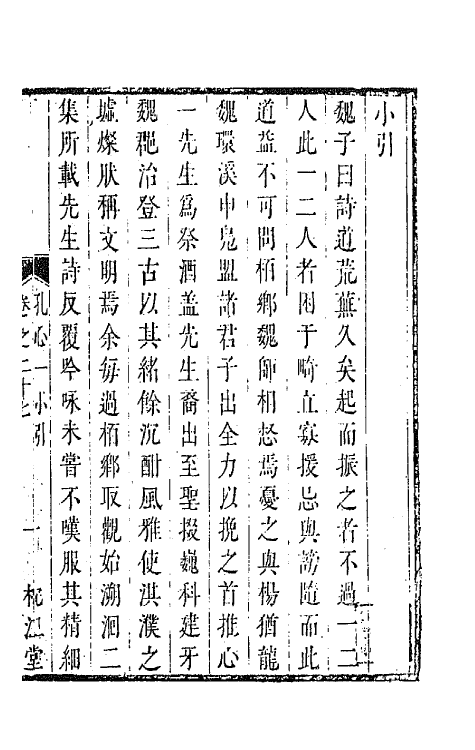 小引
魏子曰詩道荒蕪久矣起而振之者不過一二
人此一二人者困于畸立寡援忌與謗隨而此
道益不可問栢鄉魏師相愁焉憂之與楊猶龍
魏環溪申鳧盟諸君子出全力以挽之首推心
一先生為祭酒盖先生裔出至聖掇巍科建牙
魏闕治登三古以其緒餘沉酣風雅使淇濮之
墟燦狀稱文明焉余每過栢鄉取觀始溯洄二
集所載先生詩反覆吟咏未嘗不嘆服其精細
孔心一小引
卷之二十七
一
枕江堂